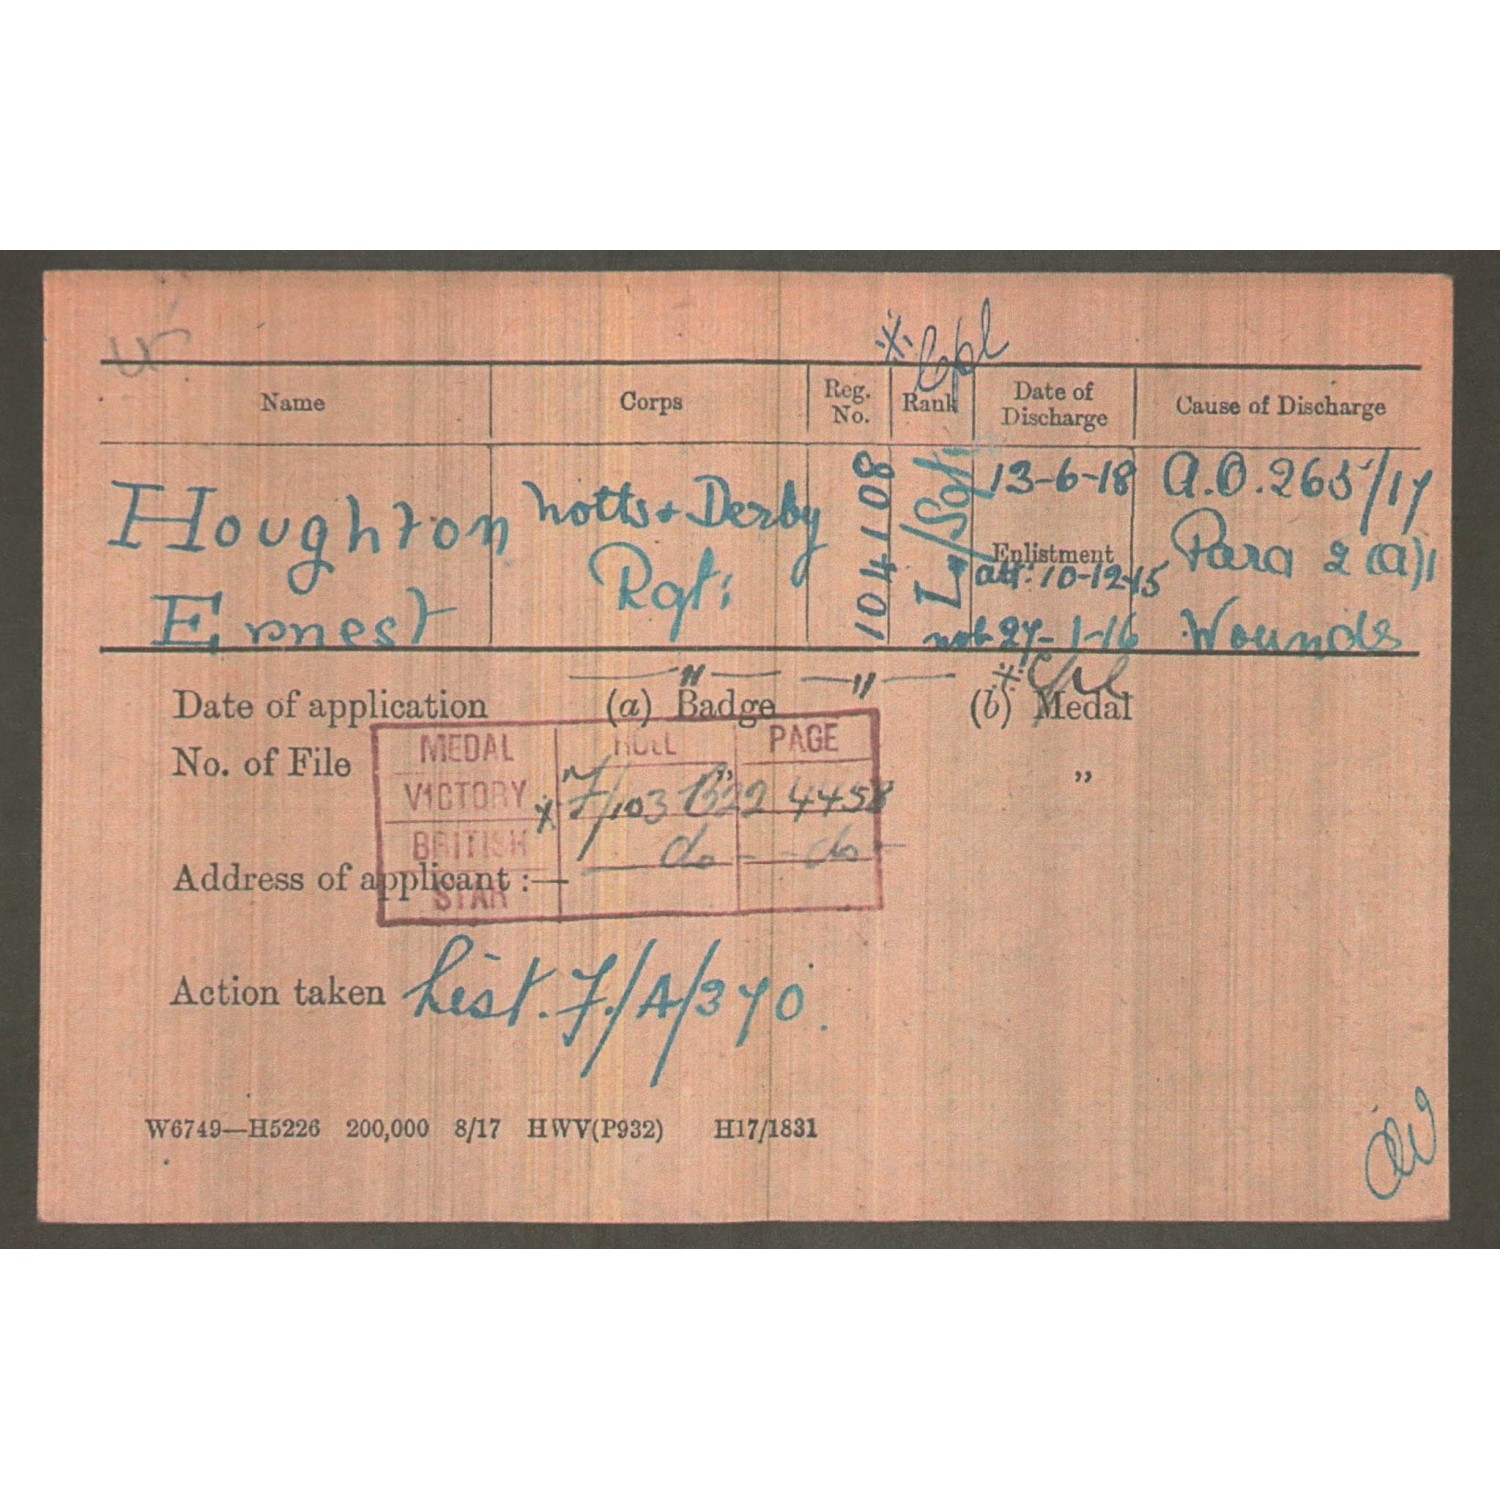 ※ Cpl
Name Corps Reg. No. Rank Date of Discharge Cause of Discharge
Houghton Ernest
Notts & Derby Rgt:
104108
L/Sgt
13-6-18
Enlistment
att: 10-12-15
mob 27-1-16
A.O. 265/17
Para 2 (a)i
Wounds
— " — — " —
Date of application (a) Badge (b) Medal
No. of File " "
MEDAL ROLL PAGE
VICTORY ※ F/103 B22 4458
BRITISH do do
STAR
Address of applicant :—
Action taken List. F./A/370.
W6749—H5226 200,000 8/17 HWV(P932) H17/1831